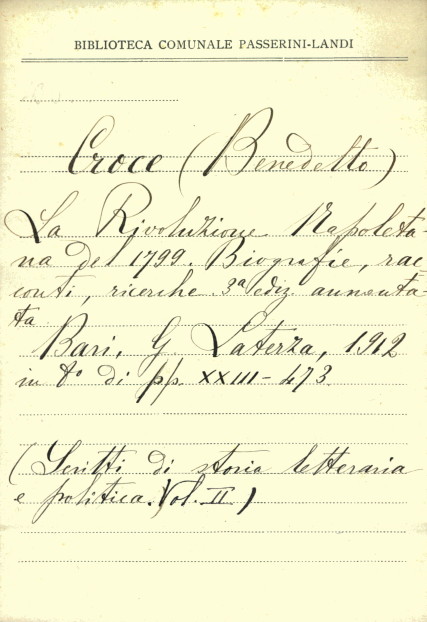 BIBLIOTECA COMUNALE PASSERINI-LANDI
Croce (Benedetto)
La Rivoluzione Napoleta-
na del 1799. Biografie, rac-
conti, ricerche 3ª ediz. aumenta-
ta
Bari, G. Laterza, 1912
in 8º di pp. XXIII-473
(Scritti di storia letteraria
e politica. Vol. II)